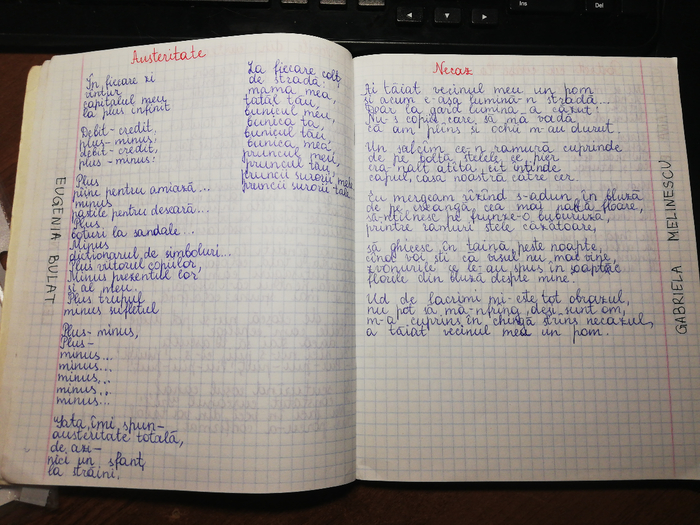 Ins
Del
Austeritate
În fiecare zi
antur
capitalul meu
la plus infinit
Debit-credit,
plus-minus;
debit-credit,
plus-minus:
Plus
pâine pentru amiază...
minus
pastile pentru deseară...
Plus
boturi la sandale...
Minus
dicționarul de simboluri...
Plus viitorul copiilor,
Minus prezentul lor
și al meu.
Plus trupul
minus sufletul
Plus-minus,
Plus-
minus...
minus...
minus...
minus...
minus...
Iată, îmi spun-
austeritate totală,
de azi-
nici un sfanț
la străini.
La fiecare colț
de stradă:
mama mea,
tatăl tău,
bunicul meu,
bunica ta,
bunicul tău
bunica mea,
pruncul meu,
pruncul tău,
pruncii surorii mele
pruncii surorii tale.
EUGENIA BULAT
Necaz
Ai tăiat vecinul meu un pom
și acum e-așa lumină-n stradă...
Doar la gard lumina a căzut:
Nu-s copii care să mă vadă
că am plîns și ochii m-au durut.
Un salcîm ce-n ramură cuprinde
de pe boltă stelele ce pier
cră-nalt atîta, cît întinde
capul, casa noastră către cer.
Eu mergeam rîzînd s-adun în bluză
de pe creangă, cea mai naltă floare,
să-ntîlnesc pe frunze-o buburuză,
printre ramuri stele căzătoare,
să ghicesc în taină, peste noapte,
cînd voi ști că visul nu mai vine,
zvonurile ce le-au spus în șoapte
florile din bluză despre mine.
Ud de lacrimi mi-este tot obrazul,
nu pot să mă-nfrîng, deși sunt om,
m-a cuprins în chingă strîns necazul,
a tăiat vecinul meu un pom.
GABRIELA MELINESCU